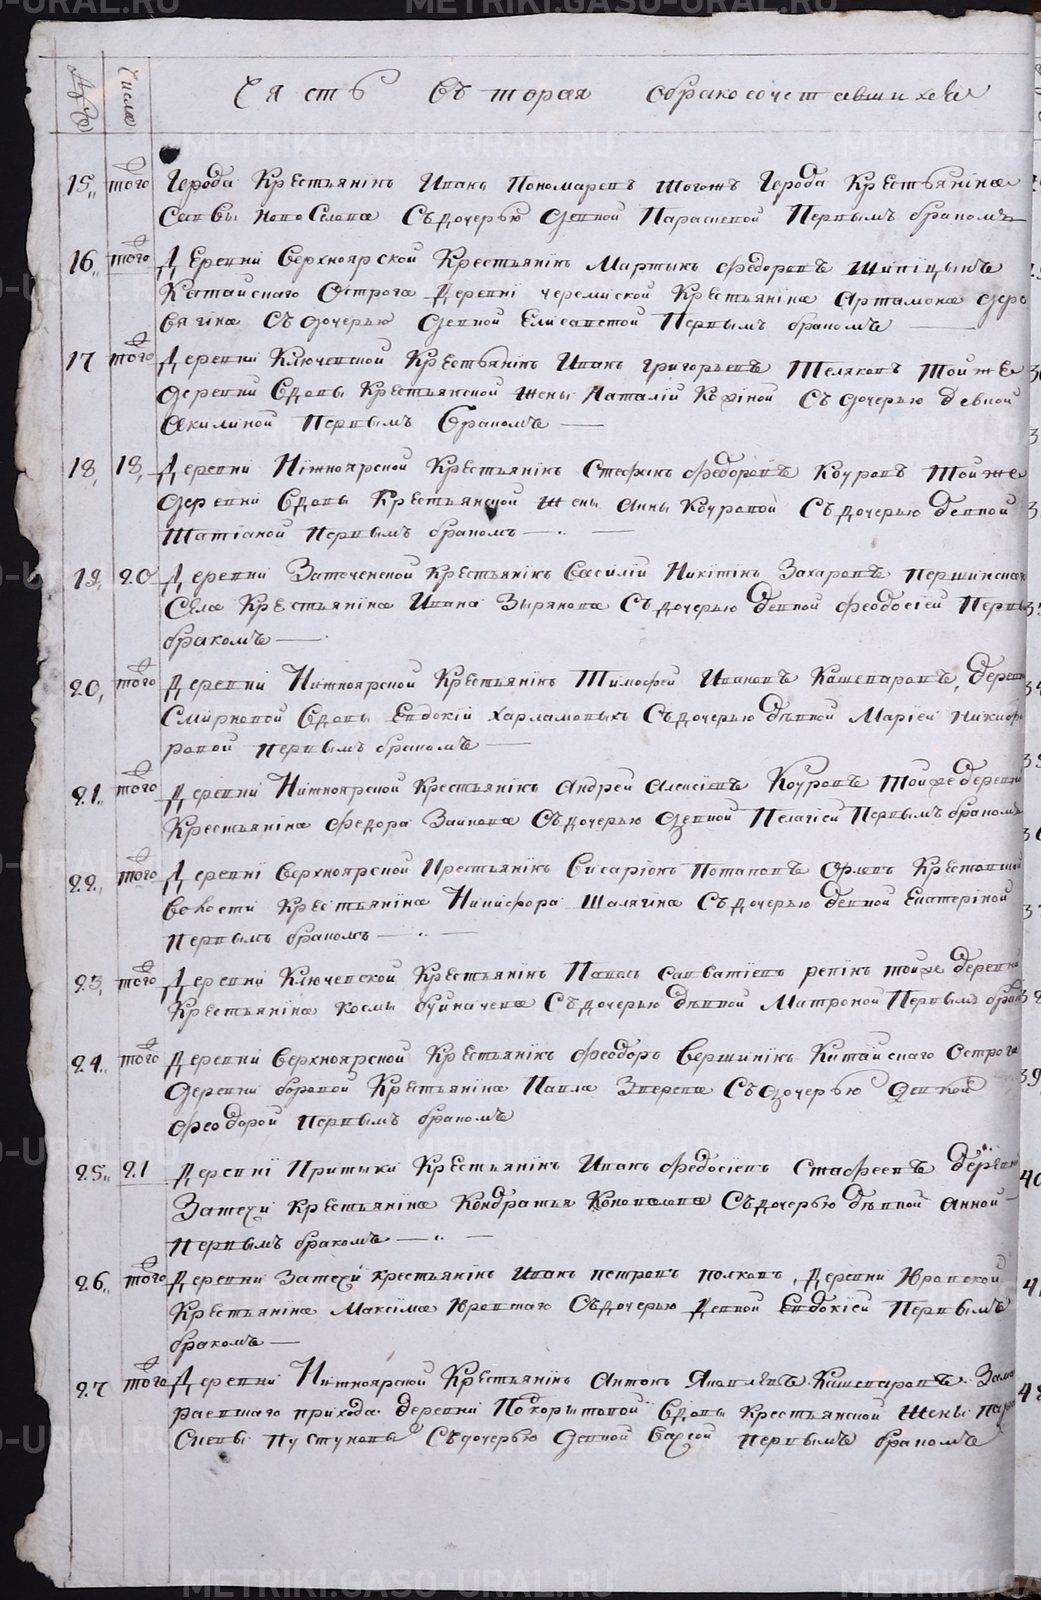 Числа
Часть вторая обракосочетавшихся
15, того Города Крестьянинъ Иванъ Пономаревъ тогожъ Города Крестьянина
Саввы Новоселова Съдочерью девкой Парасковой Первымъ бракомъ
16, того Деревни Верхноярской Крестьянинъ Мартынъ Федоровъ Шипицынъ
Катайскаго Острога Деревни черемиской Крестьянина Артамона
Съдочерью девкой Елисаветой Первымъ бракомъ
17 того Деревни Ключевской Крестьянинъ Иванъ григорьевъ Теляковъ Тойже
деревни Вдовы Крестьянской жены Наталiи Съ дочерью девкой
Акилиной Первымъ Бракомъ
18, 18, Деревни Нiжноярской Крестьянинъ Стефанъ Федоровъ Коуровъ Тойже
деревни Вдовы Крестьянской жены Анны Коуровой Съдочерью девкой
Татiаной Первымъ бракомъ
19, 20 Деревни Заточенской Крестьянинъ Василiй Никiтiнъ Захаровъ
Села Крестьянина Ивана Зырянова Съдочерью девкой Феодосiей
бракомъ
20, того Деревни Нижноярской Крестьянинъ Тимофей Ивановъ Кашеваровъ,
Смирновой Вдовы Евдокiи Харламовыхъ Съдочерью дѣвкой Марiей
ровой первымъ бракомъ
21, того Деревни Нижноярской Крестьянинъ Андрей Алексiевъ Коуровъ Тойже деревни
Крестьянина Федора Заикова Съдочерью девкой Пелагiей Первымъ бракомъ
22, того Деревнi Верхноярской Крестьянинъ Висарiонъ Потаповъ Орловъ
волости Крестьянина Никифора Шалягiна Съдочерью девкой Екатерiной
Первымъ бракомъ
23, того Деревнi Ключевской Крестьянинъ Павелъ Савватiевъ репiнъ тойже деревни
Крестьянина Космы буйначева Съдочерью дѣвкой Матроной Первымъ
24, того Деревни Верхноярской Крестьянинъ Феодоръ Вершининъ Китайскаго Острога
деревни боровой Крестьянина Павла Зверева Съдочерью девкой
Феодорой Первымъ бракомъ
25, 21 Деревнi Притыки Крестьянинъ Иванъ Федосiевъ Стафеевъ
Затечи Крестьянина Кондратья Коновалова Съдочерью дѣвкой Анной
Первымъ бракомъ
26, того Деревни Затечи крестьянинъ Иванъ петровъ волковъ, Деревни Юровской
Крестьянина Максiма Юровскаго Съдочерью Девкой Евдокiей Первымъ
бракомъ
27 того Деревни Нижноярской Крестьянинъ Антонъ Яковлевъ Кашеваровъ
раевскаго прихода деревни Покорытовой вдовы Крестьянской Жены
Пустуновы Съдочерью девкой Первымъ бракомъ